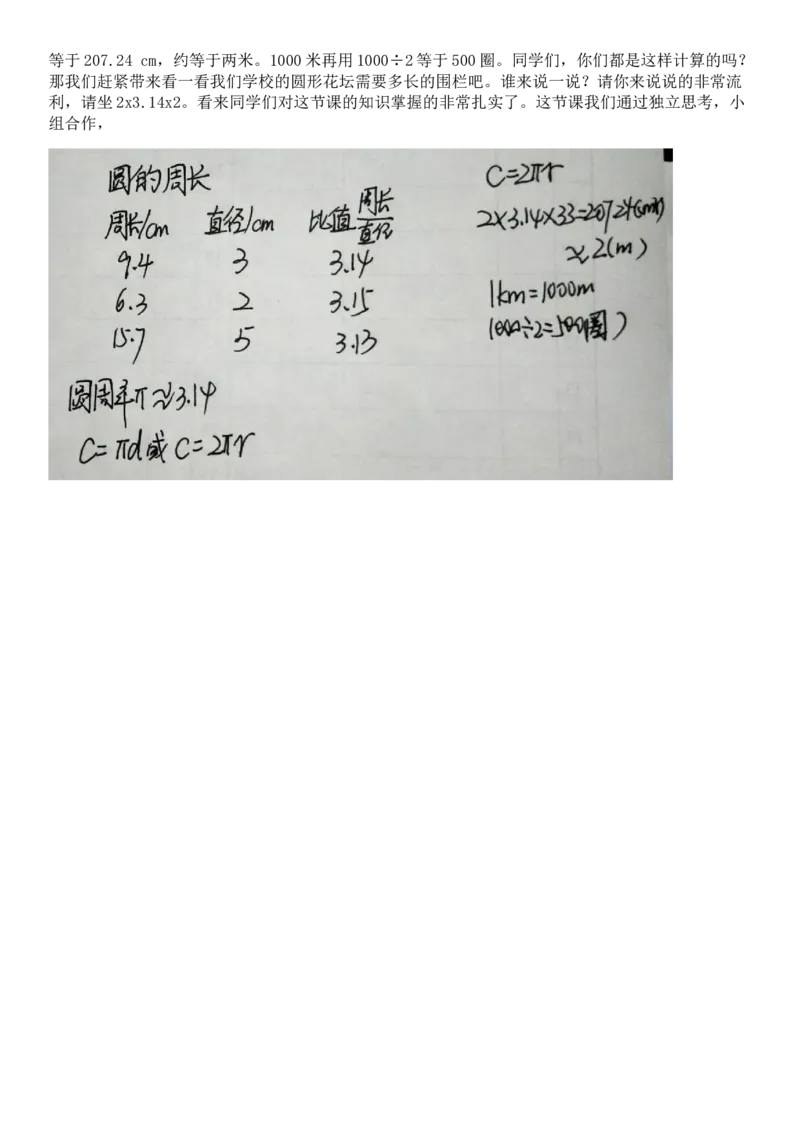 等于207.24 cm，约等于两米。1000米再用1000÷2等于500圈。同学们，你们都是这样计算的吗？
那我们赶紧带来看一看我们学校的圆形花坛需要多长的围栏吧。谁来说一说？请你来说说的非常流
利，请坐2x3.14x2。看来同学们对这节课的知识掌握的非常扎实了。这节课我们通过独立思考，小
组合作，
圆的周长
周长/cm 直径/cm 比值 周长/直径
9.4 3 3.14
6.3 2 3.15
15.7 5 3.13
圆周率π≈3.14
C=πd或C=2πr
C=2πr
2×3.14×33=207.24(cm)
≈2(m)
1km=1000m
1000÷2=500圈)